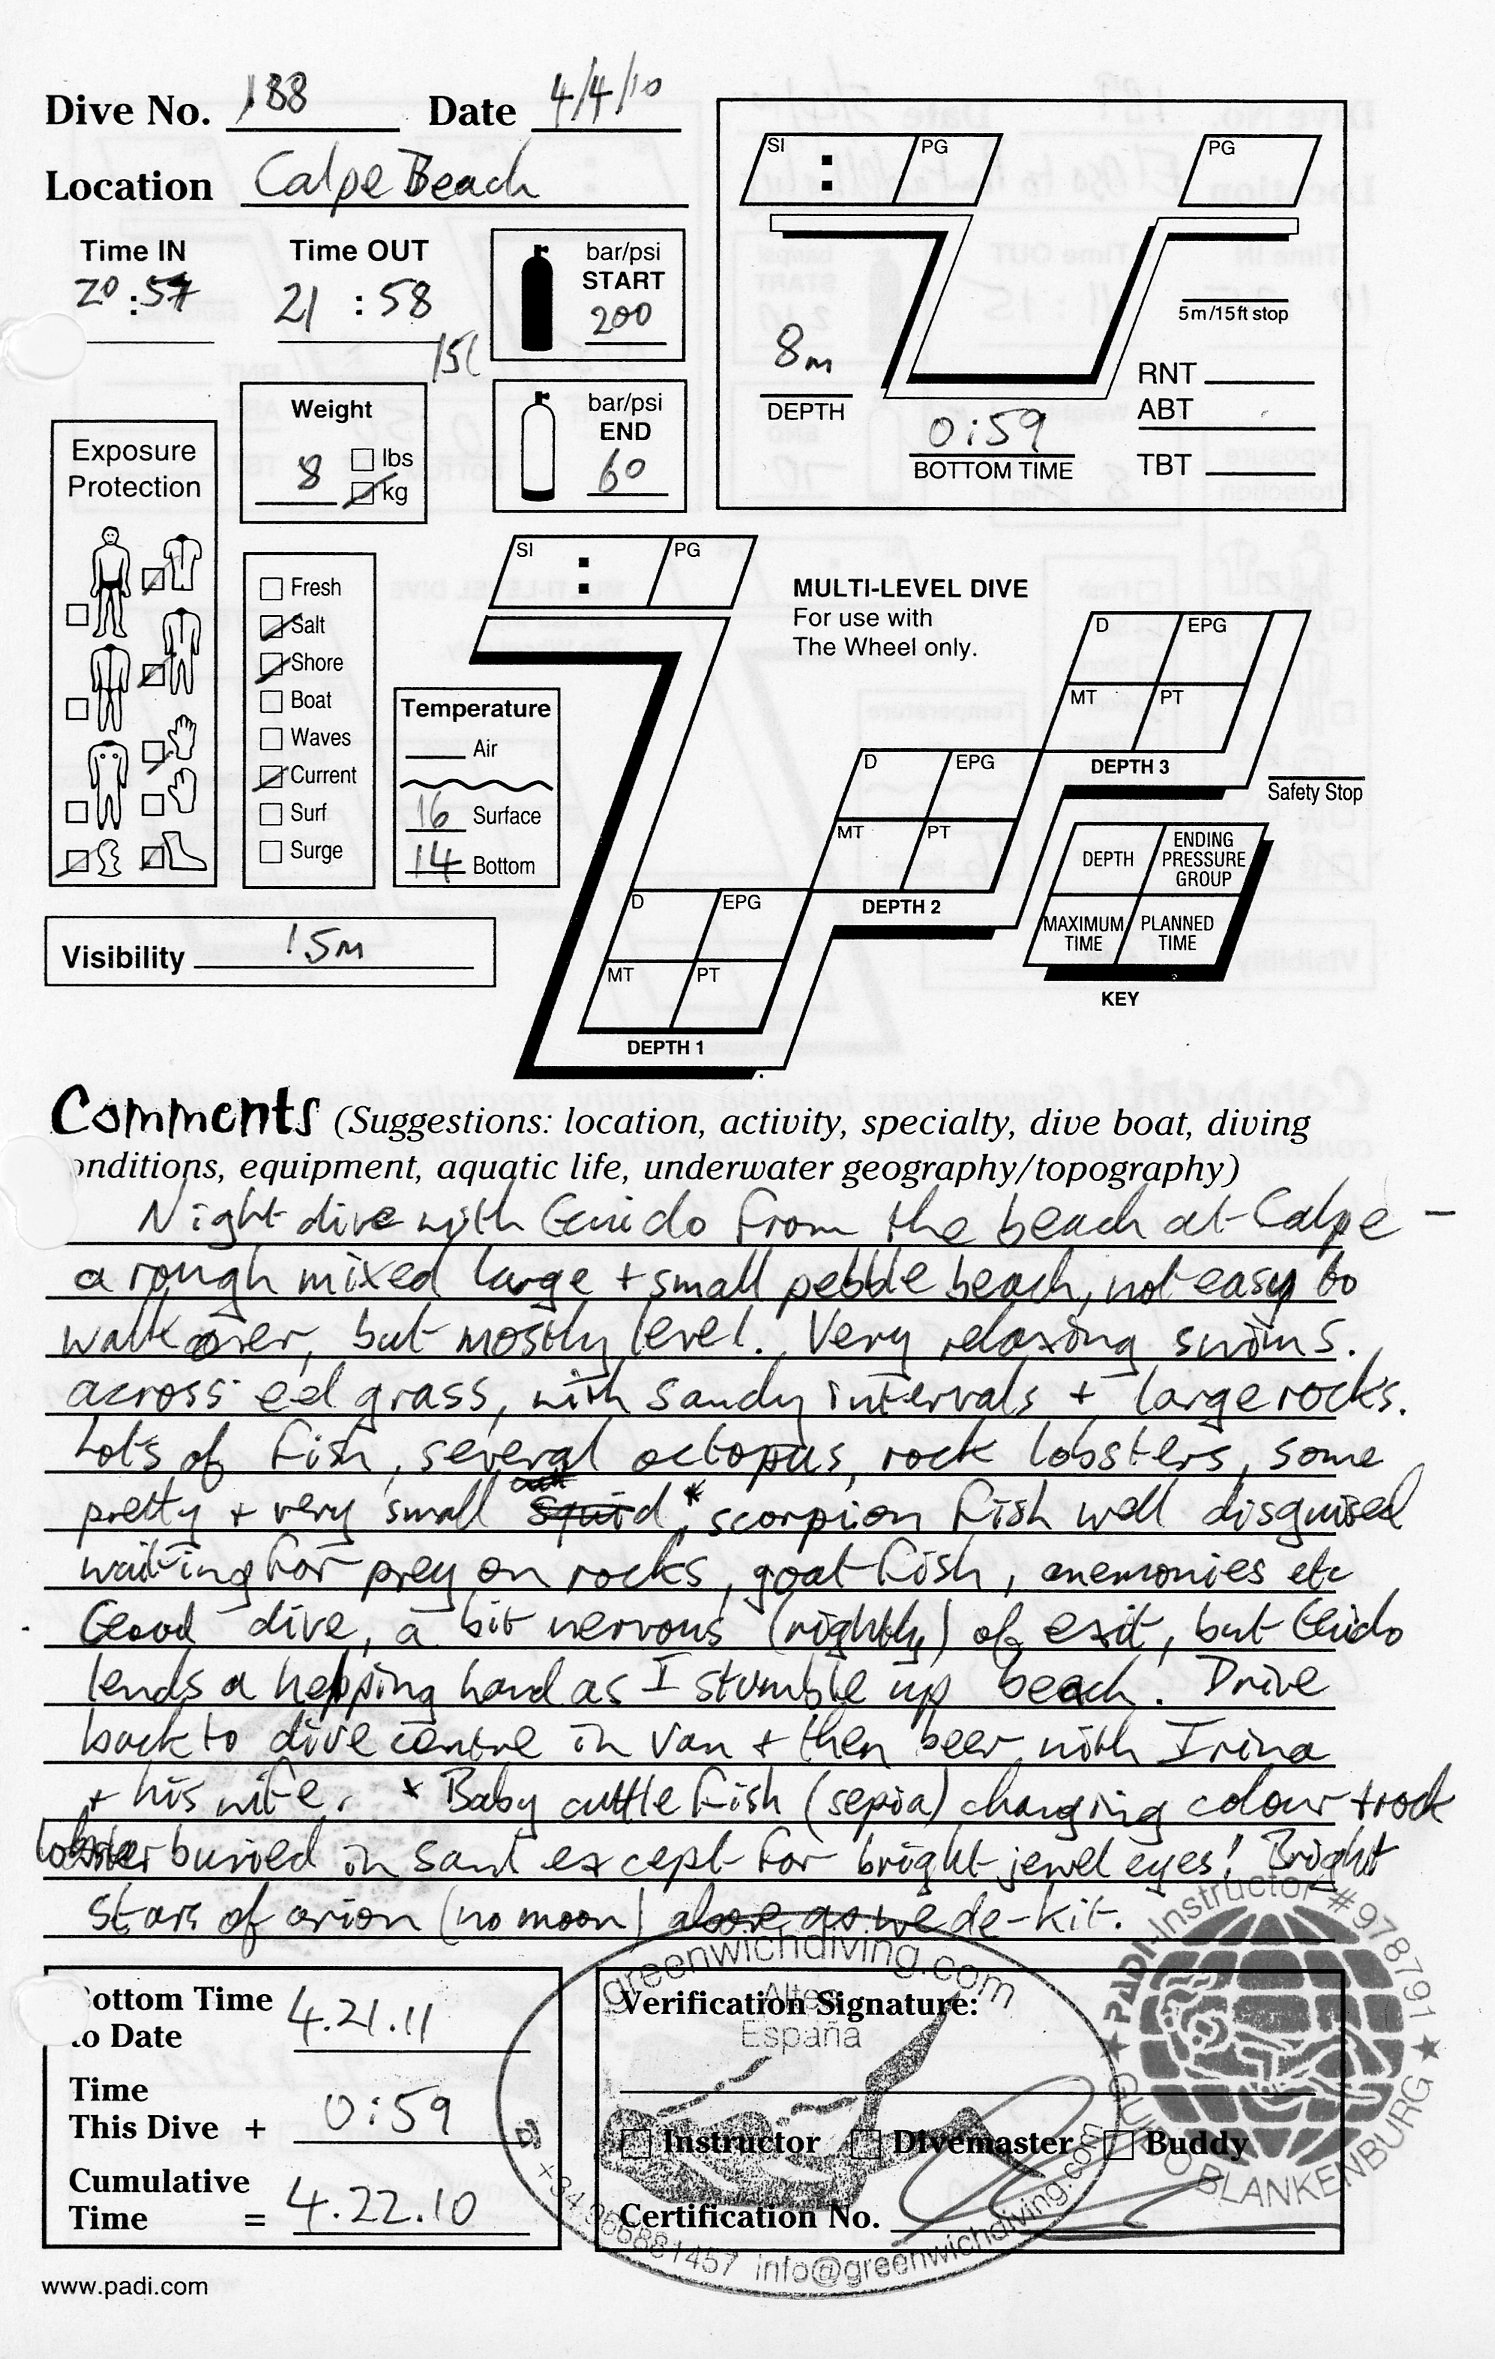 Dive No. 188 Date 4/4/10
Location Calpe Beach
Time IN Time OUT
20:57 21:58
15l
bar/psi
START
200
bar/psi
END
60
Weight
8 lbs
kg
Exposure
Protection
Fresh
Salt
Shore
Boat
Waves
Current
Surf
Surge
Temperature
Air
16 Surface
14 Bottom
Visibility 15m
SI : PG
PG
8m
DEPTH
0:59
BOTTOM TIME
5m/15ft stop
RNT
ABT
TBT
SI : PG
MULTI-LEVEL DIVE
For use with
The Wheel only.
D EPG
MT PT
DEPTH 3
Safety Stop
D EPG
MT PT
DEPTH 2
D EPG
MT PT
DEPTH 1
DEPTH ENDING PRESSURE GROUP
MAXIMUM TIME PLANNED TIME
KEY
Comments (Suggestions: location, activity, specialty, dive boat, diving
onditions, equipment, aquatic life, underwater geography/topography)
Night dive with Guido from the beach at Calpe –
a rough mixed large + small pebble beach, not easy to
walk over, but mostly level. Very relaxing swims.
across eel grass, with sandy intervals + large rocks.
Lots of fish, several octopus, rock lobsters, some
pretty + very small squid,* scorpion fish well disguised
waiting for prey on rocks, goat fish, anemonies etc
Good dive, a bit nervous (rightly) of exit, but Guido
lends a helping hand as I stumble up beach. Drive
back to dive centre in van + then beer with Irina
+ his wife. * Baby cuttle fish (sepia) changing colour + rock
lobster buried in sand except for bright jewel eyes! Bright
stars of orion (no moon) above as we de-kit.
ottom Time
to Date 4.21.11
Time
This Dive + 0:59
Cumulative
Time = 4.22.10
Verification Signature:
Instructor Divemaster Buddy
Certification No.
greenwichdiving.com
Altea
España
+34.966881457 info@greenwichdiving.com
PADI-Instructor #978791
GUIDO BLANKENBURG
www.padi.com